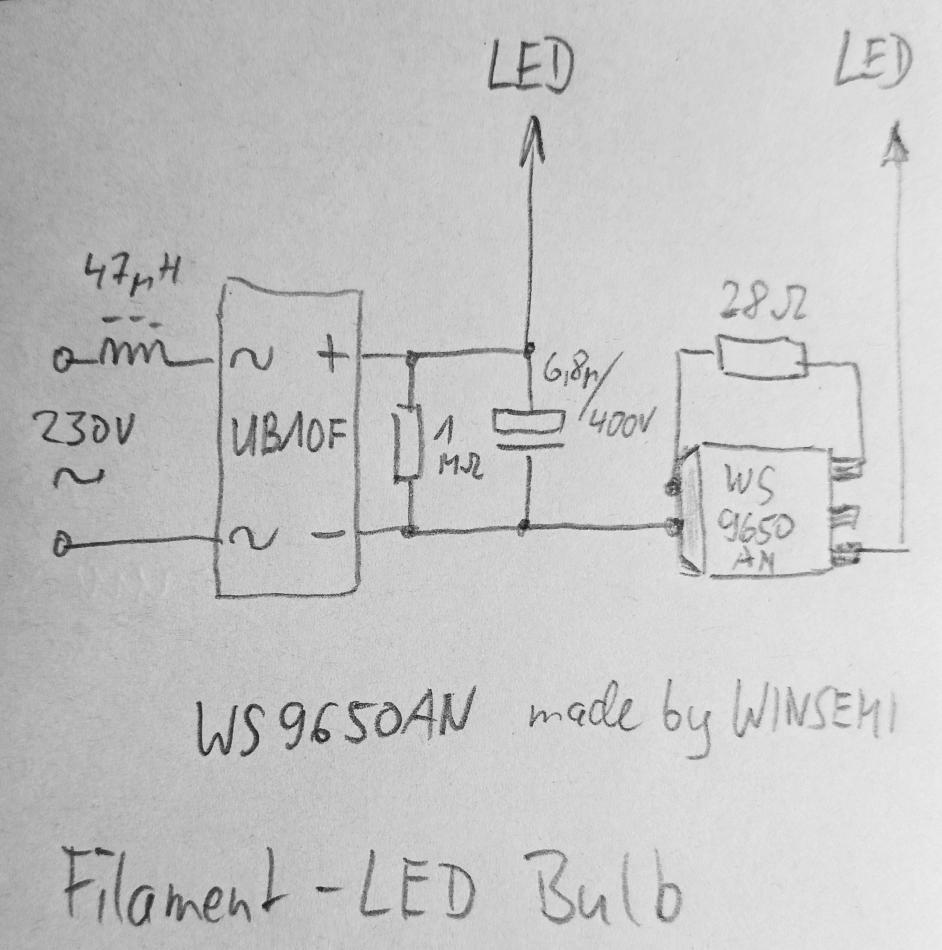 LED LED
47µH
28Ω
~ +
6,8µ/
400V
230V
~
UB10F
1
MΩ
WS
9650
AN
~ −
WS9650AN made by WINSEMI
Filament-LED Bulb